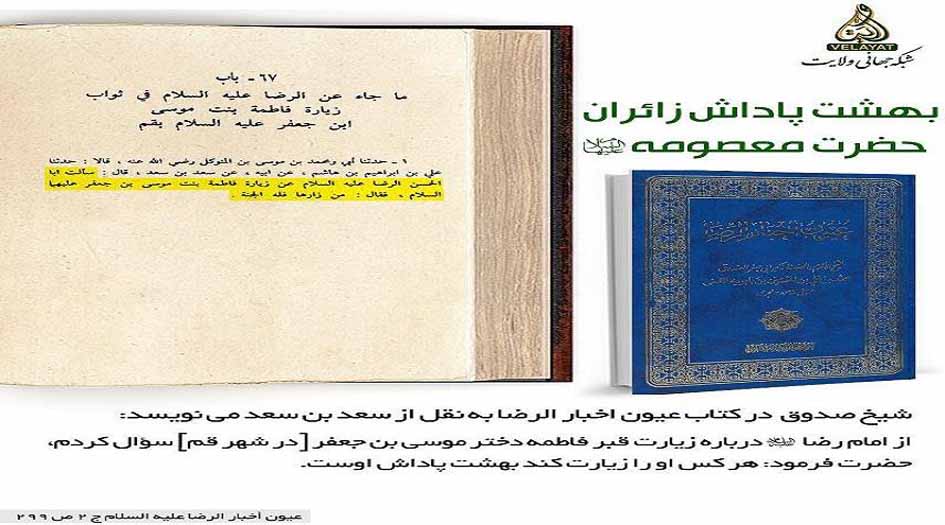 VELAYAT
شبکه جهانی ولایت
بهشت پاداش زائران
حضرت معصومه علیهاالسلام
٦٧ - باب
ما جاء عن الرضا عليه السلام في ثواب
زيارة فاطمة بنت موسى
ابن جعفر عليه السلام بقم
١ - حدثنا أبي ومحمد بن موسى بن المتوكل رضي الله عنه ، قالا : حدثنا
علي بن ابراهيم بن هاشم ، عن ابيه ، عن سعد بن سعد ، قال : سألت ابا
الحسن الرضا عليه السلام عن زيارة فاطمة بنت موسى بن جعفر عليهما
السلام ، فقال : من زارها فله الجنة .
عيون اخبار الرضا
شیخ صدوق در کتاب عیون اخبار الرضا به نقل از سعد بن سعد می نویسد:
از امام رضا علیه‌السلام درباره زیارت قبر فاطمه دختر موسی بن جعفر [در شهر قم] سؤال کردم،
حضرت فرمود: هر کس او را زیارت کند بهشت پاداش اوست.
عیون أخبار الرضا علیه السلام ج ۲ ص ۲۹۹